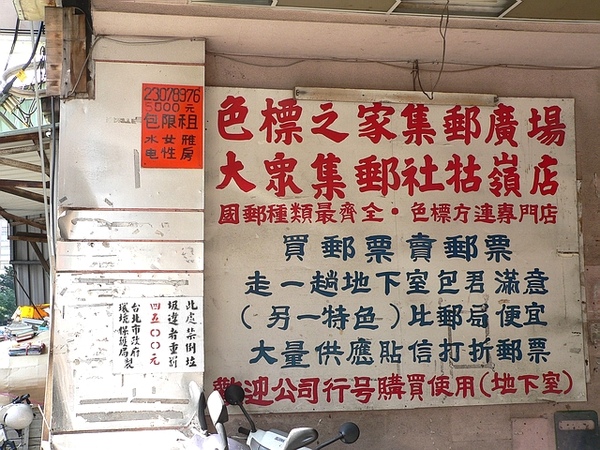 23078976
5,000元
包限租
水女雅
电性房
色標之家集郵廣場
大眾集郵社牯嶺店
國郵種類最齊全·色標方連專門店
買郵票賣郵票
走一趟地下室包君滿意
(另一特色)比郵局便宜
大量供應貼信打折郵票
歡迎公司行号購買使用(地下室)
此處禁倒垃
圾違者重罰
四五〇〇元
台北市政府
環境保護局製